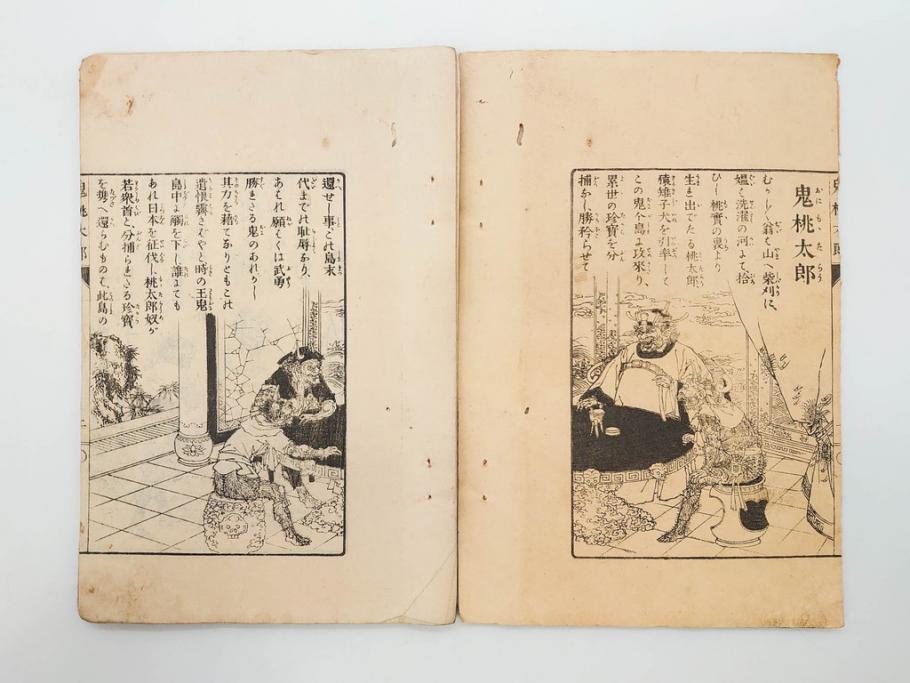 鬼桃太郎
むかし〳〵翁は山へ柴刈に、
媼は洗濯の河にて、拾
ひし桃實の裏より
生れ出でたる桃太郎、
猿雉子犬を引率して
この鬼ヶ島に攻來り、
累世の珍寶を分
捕なし勝矜らせて
還せし事、この島末
代までの恥辱なり、
あはれ願くは武勇
勝れたる鬼のあれかし
其力を藉てなりともこの
遺恨霽さばやと時の王鬼
島中に觸を下し誰にても
あれ日本を征伐し桃太郎奴が
若衆首と分捕られたる珍寶
を携へ還らむものは、此島の
鬼桃太郎